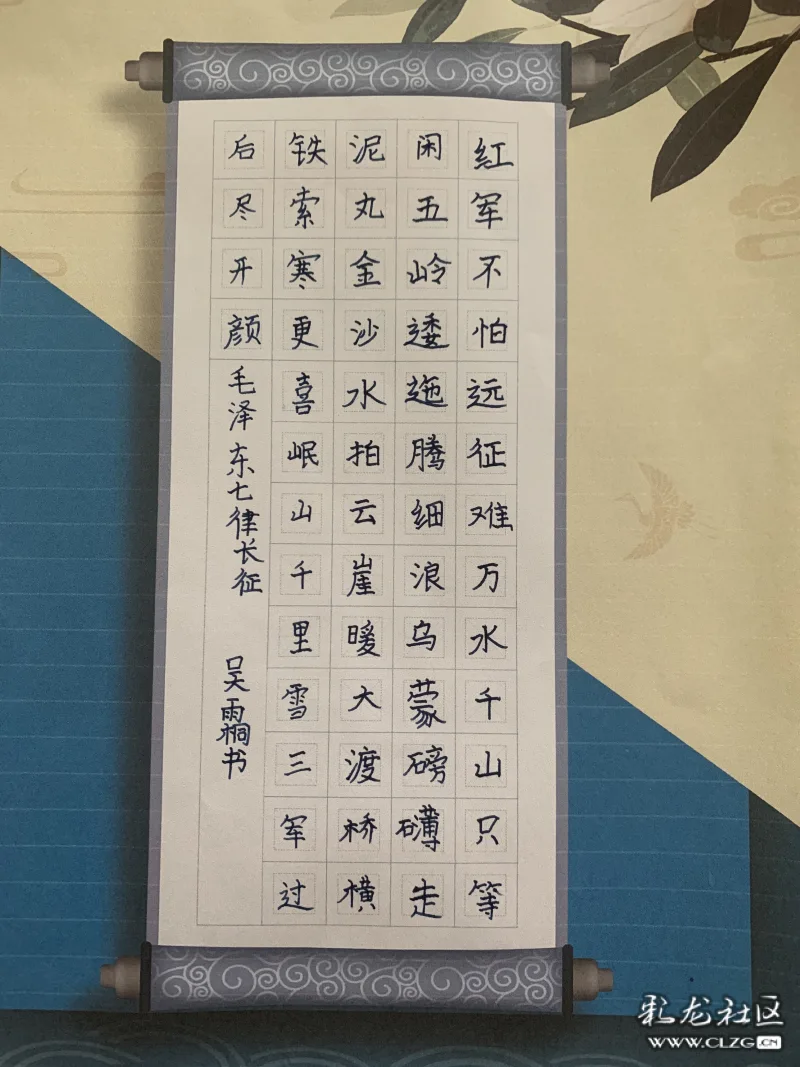 红军不怕远征难万水千山只等
闲五岭逶迤腾细浪乌蒙磅礴走
泥丸金沙水拍云崖暖大渡桥横
铁索寒更喜岷山千里雪三军过
后尽开颜
毛泽东七律长征
吴雨书
彩龙社区
WWW.CLZG.CN